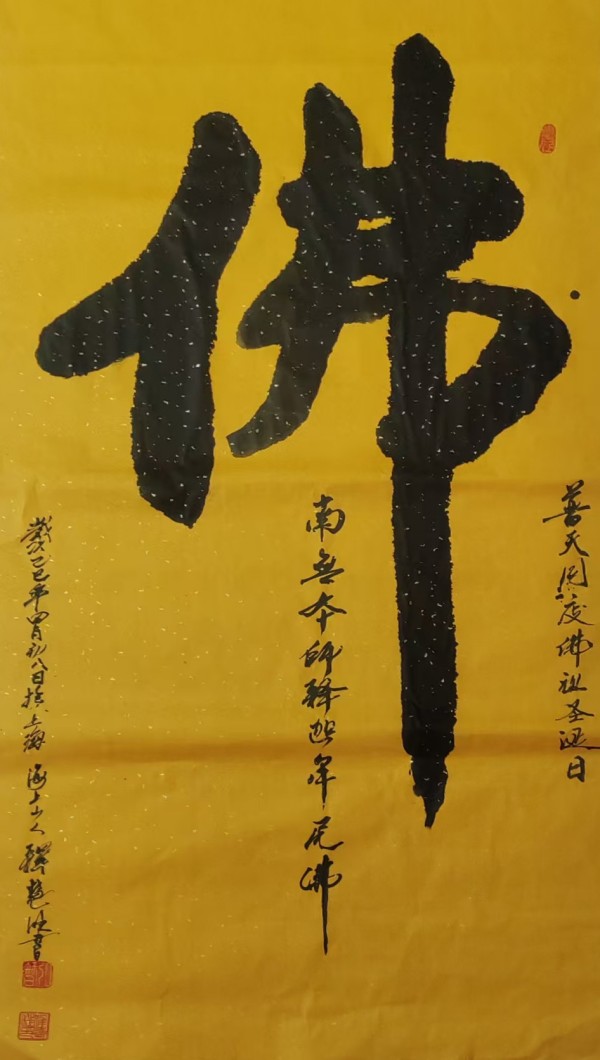 佛
普天同度佛祖圣诞日
南無本师释迦牟尼佛
歲次乙巳年四月初八日於上海 海上山人 書